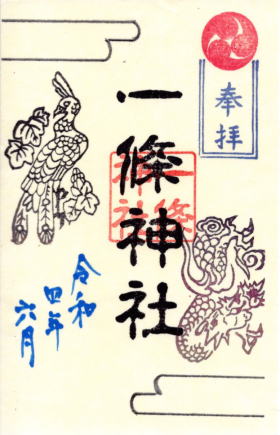 奉拝
一條神社
一條
神社
令和
四年
六月